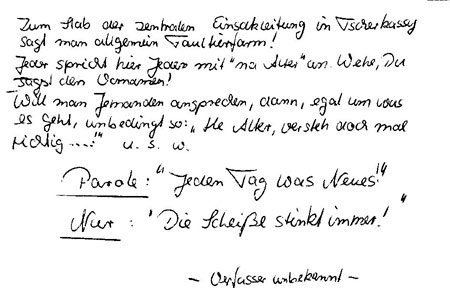 Zum Stab der zentralen Einsatzleitung in Tscherkassy
sagt man allgemein Faultierfarm!
Jeder spricht hier Jeden mit "na Alter" an. Wehe, Du
sagst den Vornamen!
Will man Jemanden ansprechen, dann, egal um was
es geht, unbedingt so: "He Alter, versteh doch mal
richtig ....!" u. s. w.
Parole: "Jeden Tag was Neues!"
Nur: "Die Scheiße stinkt immer!"
- Verfasser unbekannt -